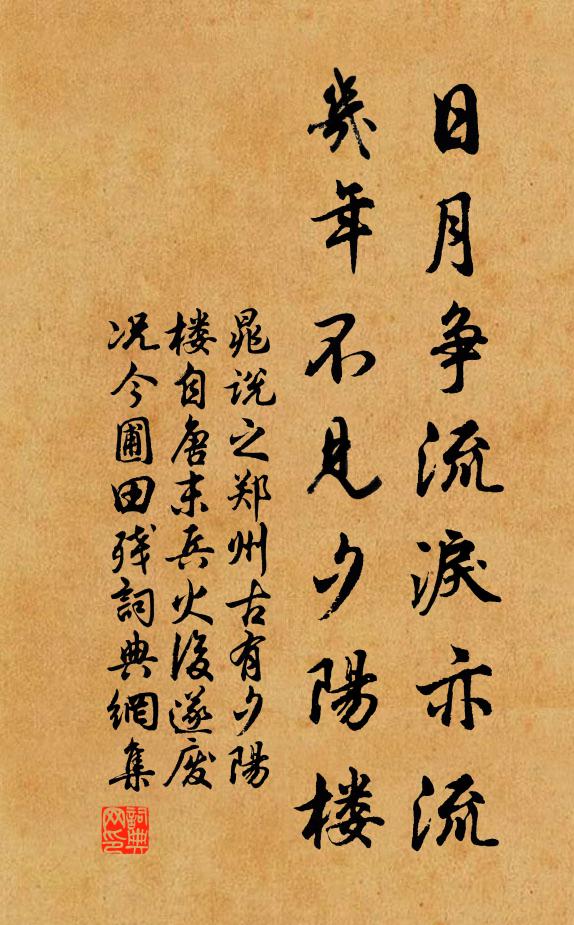 日月争流淚亦流
幾年不見夕陽楼
晁说之郑州古有夕陽
楼自唐末兵火後遂废
况今圃田残詞典網集
詞典网印